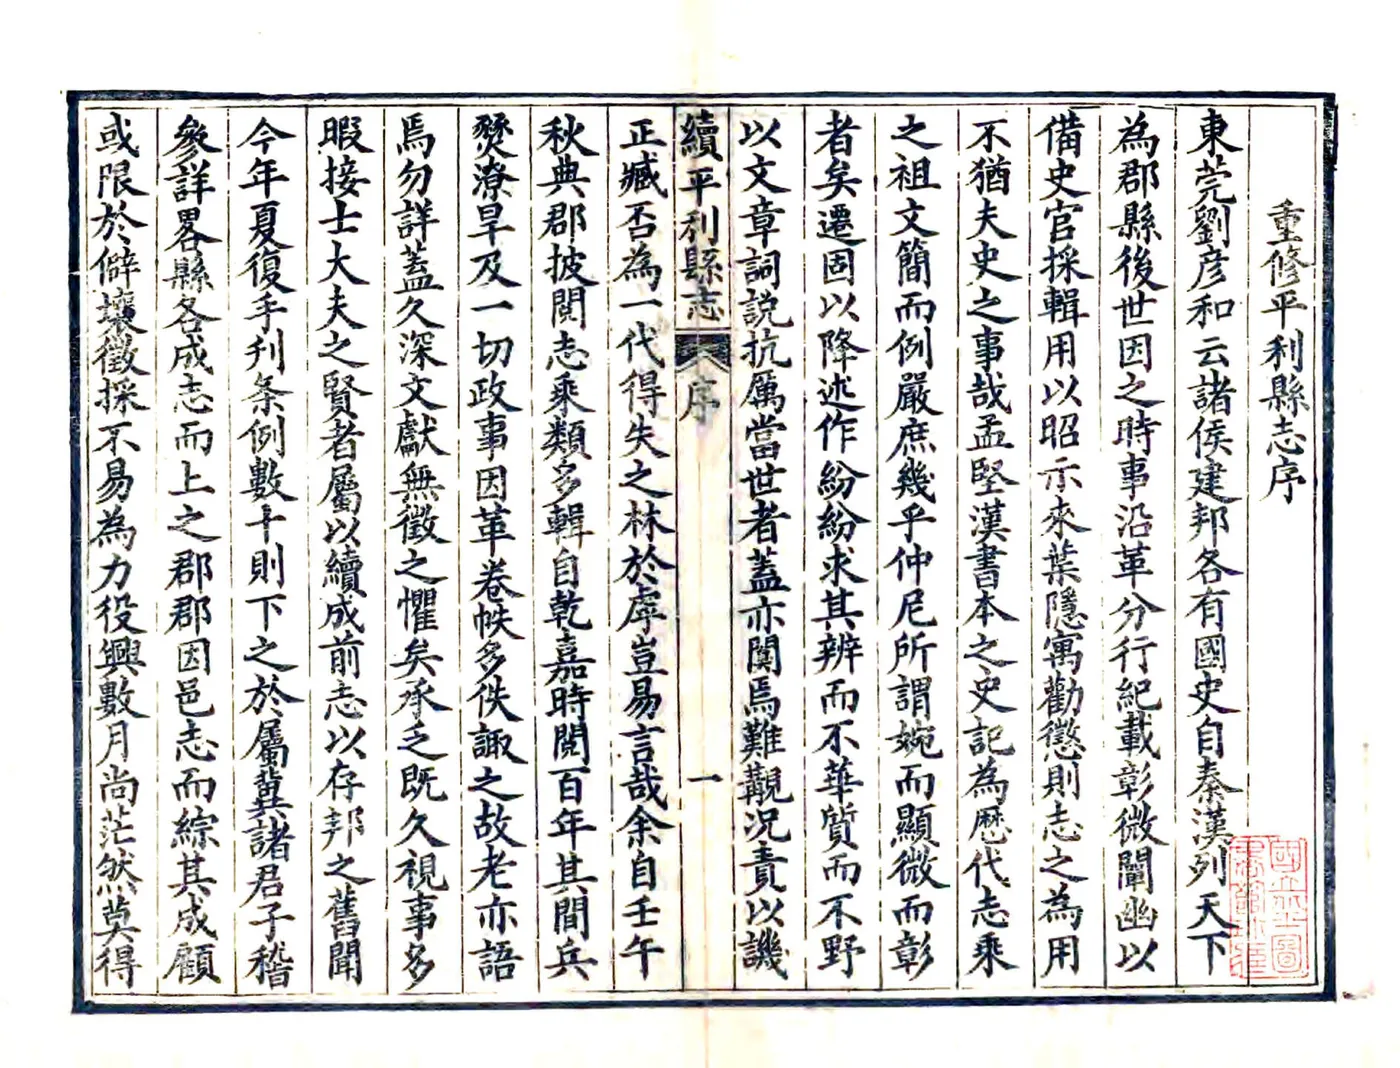 重修平利縣志序
東莞劉彦和云諸侯建邦各有國史自秦漢列天下
為郡縣後世因之時事沿革分行紀載彰微闡幽以
備史官採輯用以昭示來葉隱寓勸懲則志之為用
不猶夫史之事哉孟堅漢書本之史記為歷代志乘
之祖文簡而例嚴庶幾乎仲尼所謂婉而顯微而彰
者矣遷固以降述作紛紛求其辨而不華質而不野
以文章詞說抗厲當世者蓋亦闃焉難觀况責以譏
續平利縣志
序
一
正臧否為一代得失之林於虖豈易言哉余自壬午
秋典郡披閱志乘類多輯自乾嘉時閱百年其間兵
燹潦旱及一切政事因革卷帙多佚諏之故老亦語
焉勿詳蓋久深文獻無徵之懼矣承乏既久視事多
暇接士大夫之賢者屬以續成前志以存邦之舊聞
今年夏復手刋条例數十則下之於屬冀諸君子稽
參詳畧縣各成志而上之郡郡因邑志而綜其成顧
或限於僻壤徵採不易為力役興數月尚茫然莫得